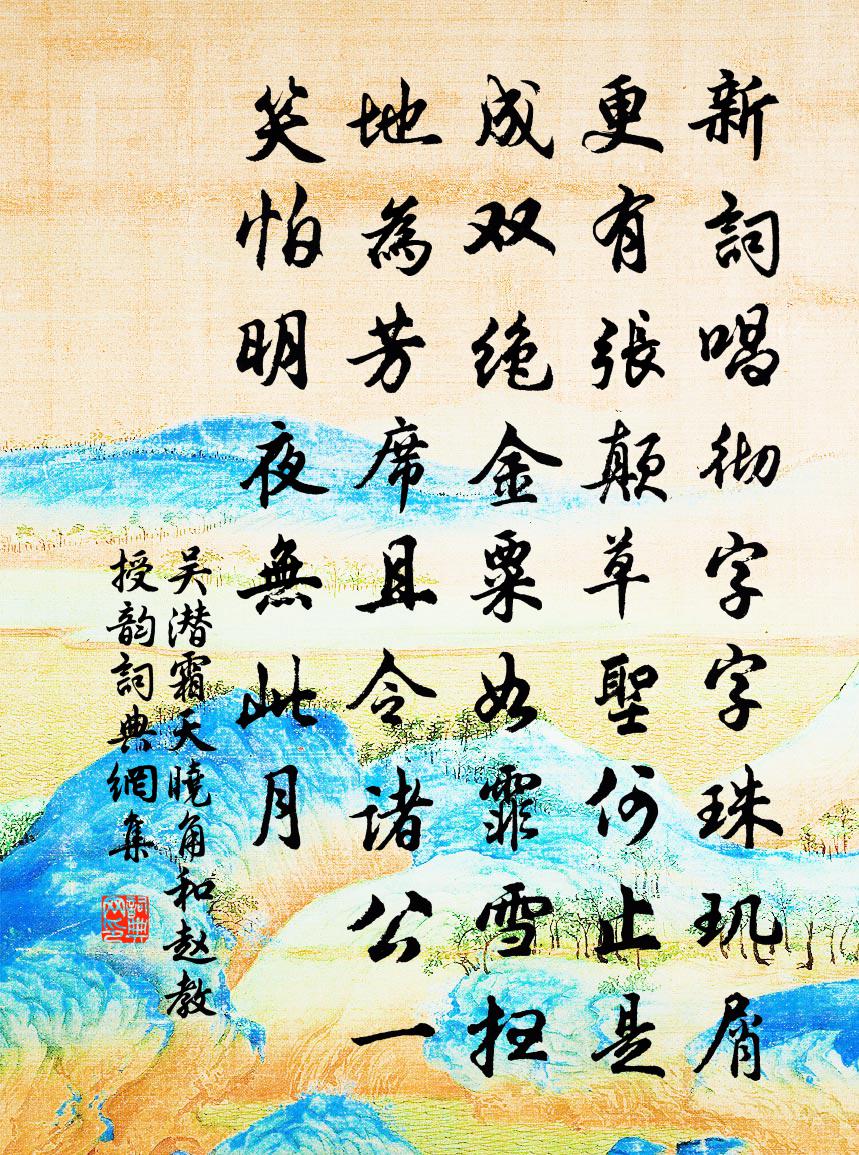 新詞唱彻字字珠玑屑
更有張顛草聖何止是
成双绝金粟如霏雪扫
地為芳席且令诸公一
笑怕明夜無此月
吴潜霜天曉角和赵教
授韵詞典網集